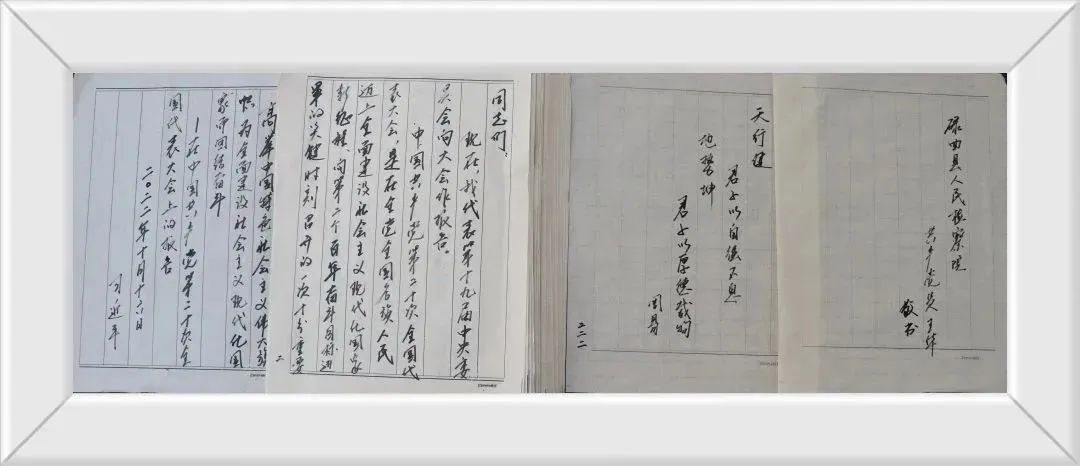 高举中国特色社会主义伟大旗
帜为全面建设社会主义现代化国
家而团结奋斗
—在中国共产党第二十次全
国代表大会上的报告
二〇二二年十月十六日
习近平
同志们：
现在，我代表第十九届中央委
员会向大会作报告。
中国共产党第二十次全国代
表大会，是在全党全国各族人民
迈上全面建设社会主义现代化国家
新征程、向第二个百年奋斗目标进
军的关键时刻召开的一次十分重要
二
天行健
君子以自强不息
地势坤
君子以厚德载物
周易
二二二
碌曲县人民检察院
共产党员王
敬书